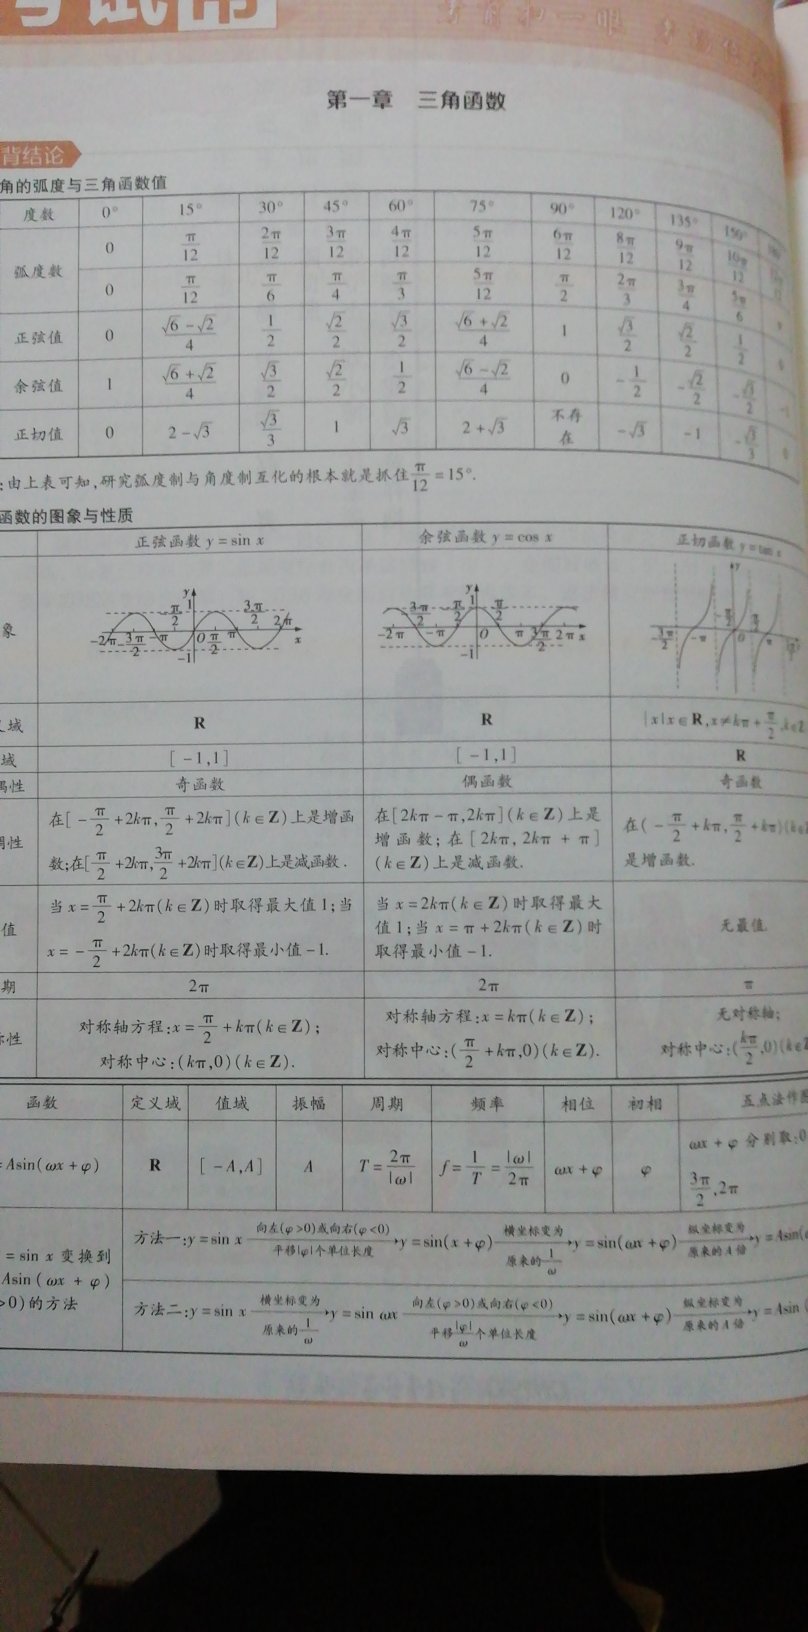 考试帮
第一章 三角函数
背结论
角的弧度与三角函数值
度数 0° 15° 30° 45° 60° 75° 90° 120° 135° 150°
弧度数 0 π/12 2π/12 3π/12 4π/12 5π/12 6π/12 8π/12 9π/12 10π/12
0 π/12 π/6 π/4 π/3 5π/12 π/2 2π/3 3π/4 5π/6
正弦值 0 (√6-√2)/4 1/2 √2/2 √3/2 (√6+√2)/4 1 √3/2 √2/2 1/2 0
余弦值 1 (√6+√2)/4 √3/2 √2/2 1/2 (√6-√2)/4 0 -1/2 -√2/2 -√3/2 -1
正切值 0 2-√3 √3/3 1 √3 2+√3 不存在 -√3 -1 -√3/3 0
:由上表可知,研究弧度制与角度制互化的根本就是抓住π/12=15°.
函数的图象与性质
正弦函数 y=sin x 余弦函数 y=cos x 正切函数 y=tan x
象
y 1 -1 O x -2π -3π/2 -π -π/2 π/2 π 3π/2 2π
y 1 -1 O x -2π -3π/2 -π -π/2 π/2 π 3π/2 2π
y O -3π/2 -π -π/2 π/2 π
义域 R R {x|x∈R,x≠kπ+π/2,k∈Z
域 [-1,1] [-1,1] R
偶性 奇函数 偶函数 奇函数
调性
在[-π/2+2kπ,π/2+2kπ](k∈Z)上是增函
数;在[π/2+2kπ,3π/2+2kπ](k∈Z)上是减函数.
在[2kπ-π,2kπ](k∈Z)上是
增函数;在[2kπ,2kπ+π]
(k∈Z)上是减函数.
在(-π/2+kπ,π/2+kπ)(k∈Z
是增函数.
值
当x=π/2+2kπ(k∈Z)时取得最大值1;当
x=-π/2+2kπ(k∈Z)时取得最小值-1.
当x=2kπ(k∈Z)时取得最大
值1;当x=π+2kπ(k∈Z)时
取得最小值-1.
无最值
期 2π 2π π
称性
对称轴方程:x=π/2+kπ(k∈Z);
对称中心:(kπ,0)(k∈Z).
对称轴方程:x=kπ(k∈Z);
对称中心:(π/2+kπ,0)(k∈Z).
无对称轴;
对称中心:(kπ/2,0)(k∈Z
函数 定义域 值域 振幅 周期 频率 相位 初相 五点法作图
=Asin(ωx+φ) R [-A,A] A T=2π/|ω| f=1/T=|ω|/2π ωx+φ φ
ωx+φ分别取:0
3π/2,2π
=sin x 变换到
Asin(ωx+φ)
>0)的方法
方法一:y=sin x 向左(φ>0)或向右(φ<0) 平移|φ|个单位长度 →y=sin(x+φ) 横坐标变为 原来的1/ω →y=sin(ωx+φ) 纵坐标变为 原来的A倍 →y=Asin(ω
方法二:y=sin x 横坐标变为 原来的1/ω →y=sin ωx 向左(φ>0)或向右(φ<0) 平移|φ|/ω个单位长度 →y=sin(ωx+φ) 纵坐标变为 原来的A倍 →y=Asin(